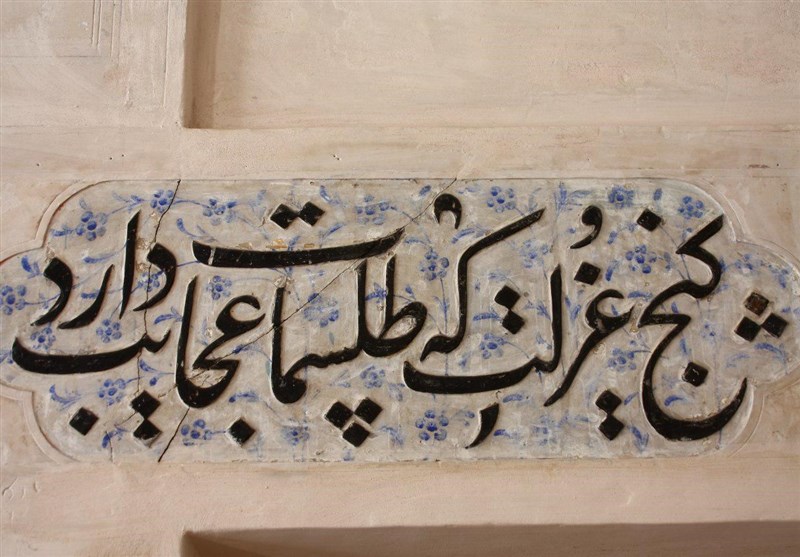 کنج عُزلت که طلسمات عجایب دارد